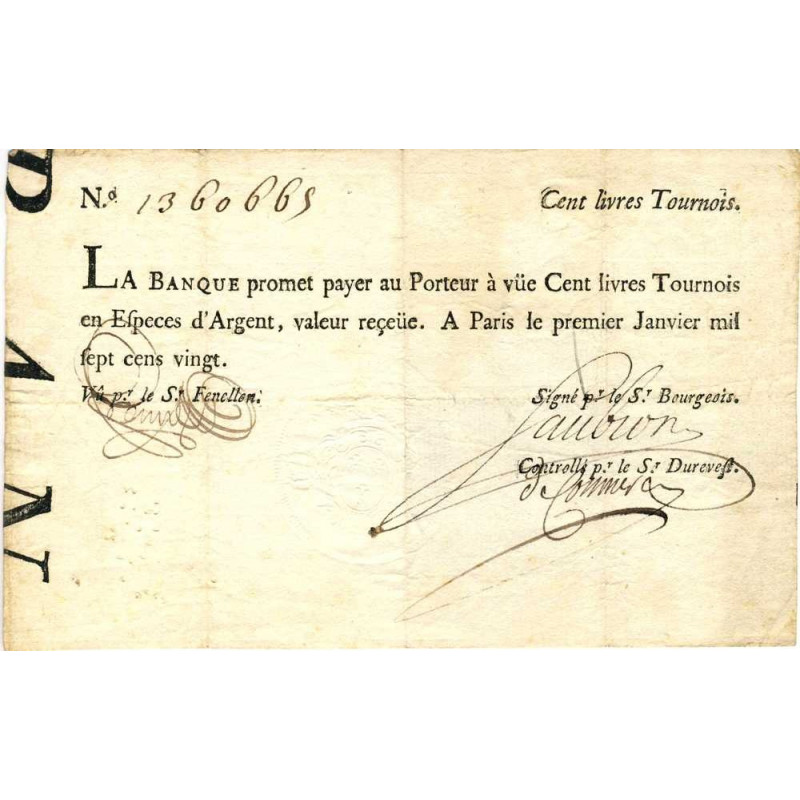 N.º 1360665 Cent livres Tournois.
LA BANQUE promet payer au Porteur à vüe Cent livres Tournois
en Eſpeces d'Argent, valeur reçeüe. A Paris le premier Janvier mil
ſept cens vingt.
Vû p.r le S.r Fenellon. Signé p.r le S.r Bourgeois.
Controllé p.r le S.r Dureveſt.